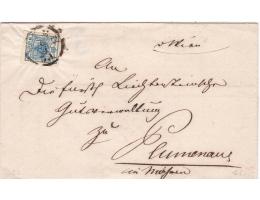 v Wien
An
Die fürstl Liechtensteinsche
Gutsverwaltung
zu
Plumenau
in Mähren